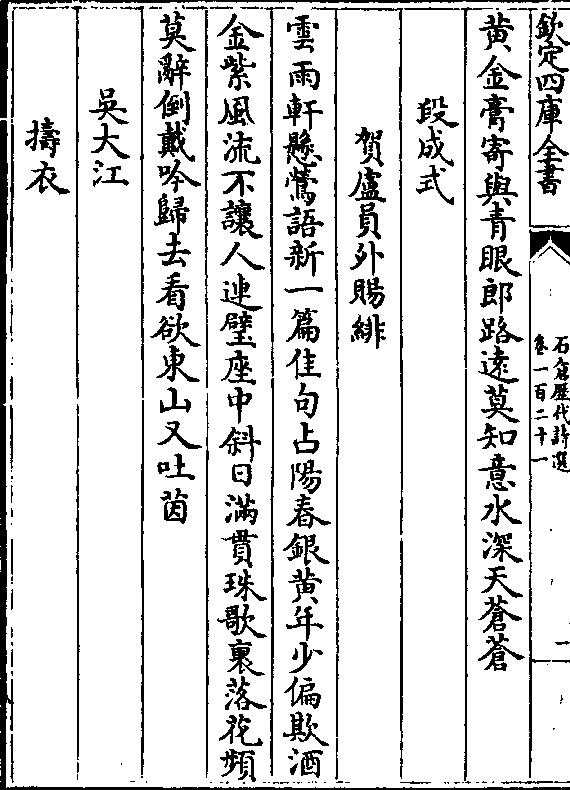 欽定四庫全書
石倉歷代詩選
卷一百二十一
一
黄金膏寄與青眼郎路遠莫知意水深天蒼蒼
段成式
賀盧員外賜緋
雲雨軒懸鶯語新一篇佳句占陽春銀黄年少偏欺酒
金紫風流不讓人連璧座中斜日滿貫珠歌裏落花頻
莫辭倒戴吟歸去看欲東山又吐茵
吳大江
擣衣